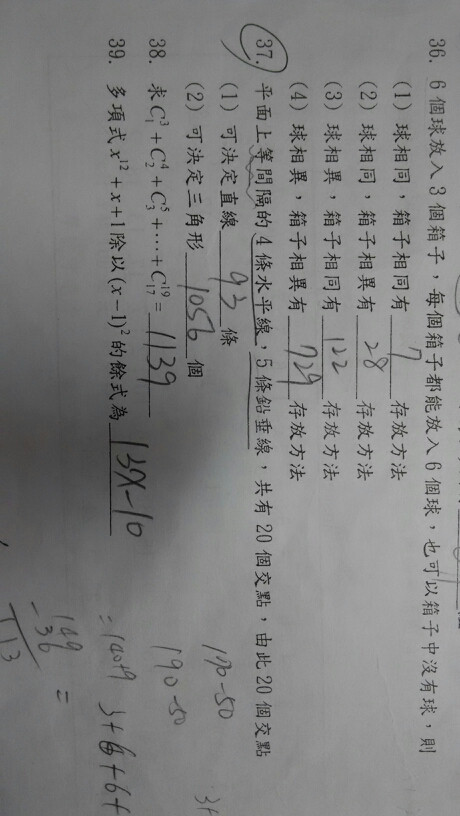 36. 6個球放入3個箱子，每個箱子都能放入6個球，也可以箱子中沒有球，則
(1) 球相同，箱子相同有 7 存放方法
(2) 球相同，箱子相異有 28 存放方法
(3) 球相異，箱子相同有 122 存放方法
(4) 球相異，箱子相異有 729 存放方法
37. 平面上等間隔的4條水平線，5條鉛垂線，共有20個交點，由此20個交點
(1) 可決定直線 93 條
(2) 可決定三角形 1056 個
38. 求C₁³+C₂⁴+C₃⁵+⋯+C₁₇¹⁹= 1139
39. 多項式x¹²+x+1除以(x−1)²的餘式為 13x-10
190-50
190-50
=140+9
3+6+6+
149
-36
=
113
3+